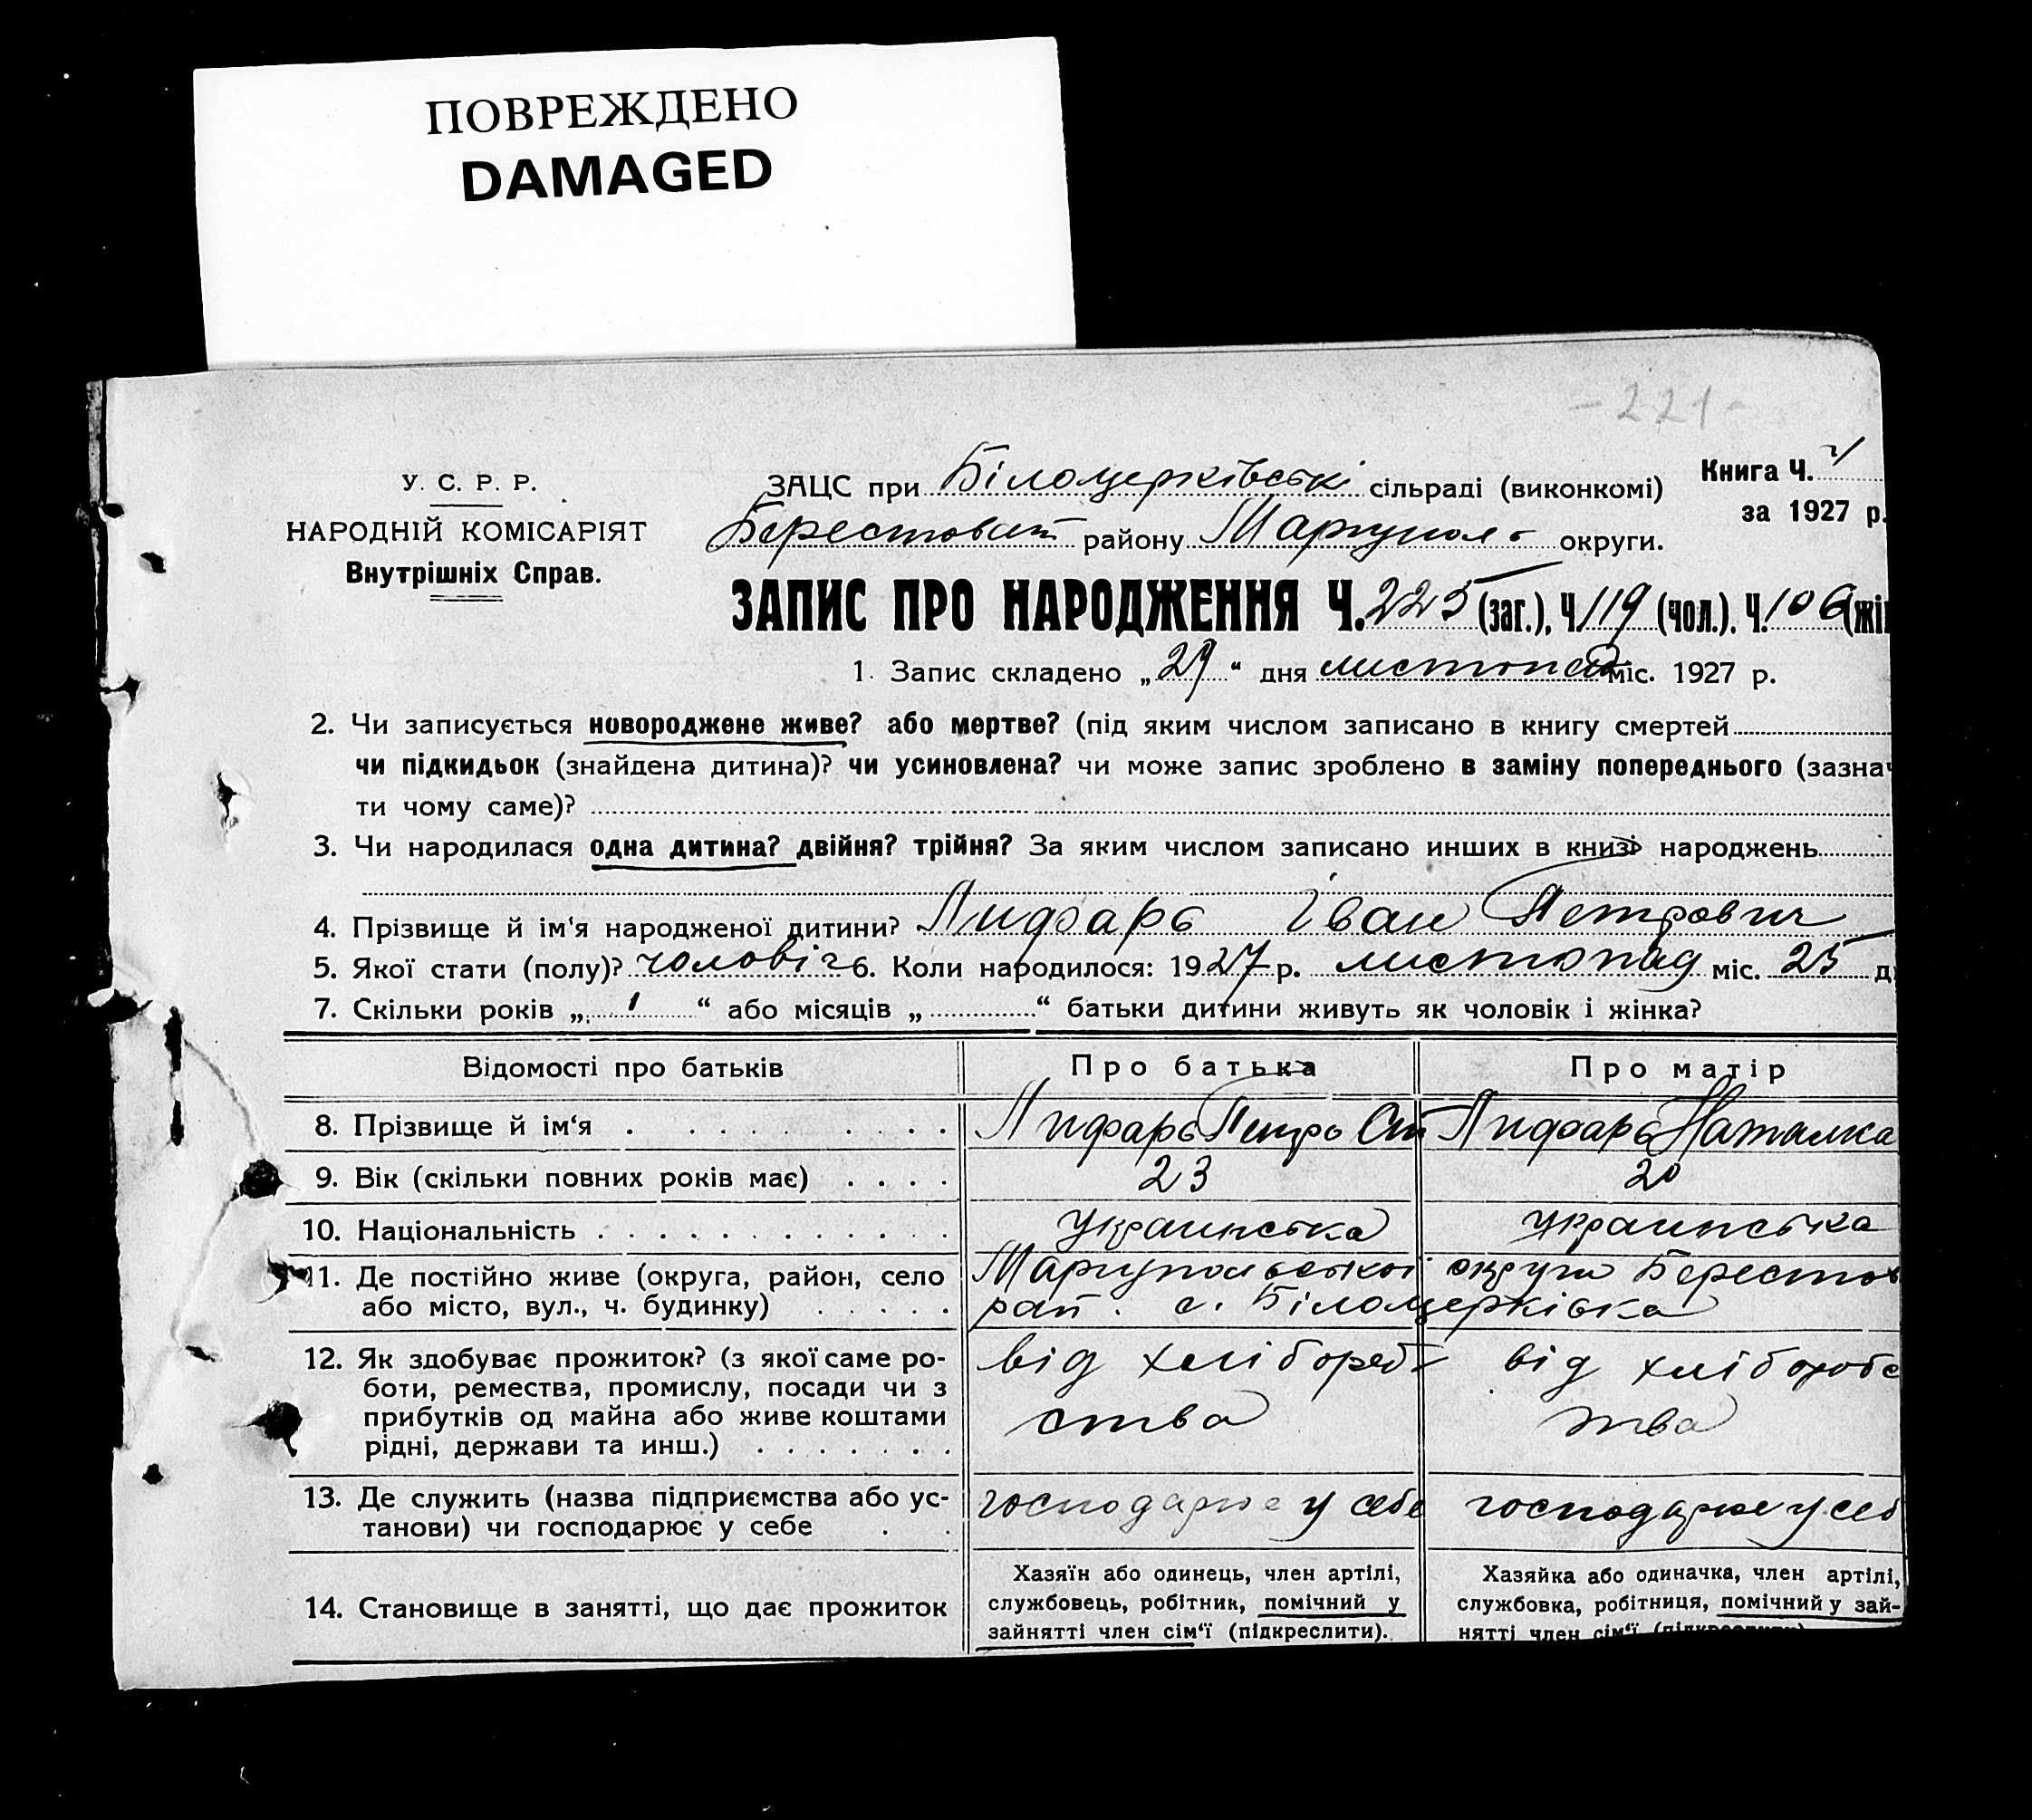 ПОВРЕЖДЕНО
DAMAGED
- 221 -
У. С. Р. Р.
НАРОДНІЙ КОМІСАРІЯТ
Внутрішніх Справ.
ЗАЦС при Біломерківські сільраді (виконкомі)
Книга Ч.
за 1927 р.
Берестоват району Маріупол округи.
ЗАПИС ПРО НАРОДЖЕННЯ Ч. 225 (заг.), Ч 119 (чол.). Ч. 106 (жі
1. Запис складено „ 29 “ дня листопад міс. 1927 р.
2. Чи записується новороджене живе? або мертве? (під яким числом записано в книгу смертей
чи підкидьок (знайдена дитина)? чи усиновлена? чи може запис зроблено в заміну попереднього (зазнач
ти чому саме)?
3. Чи народилася одна дитина? двійня? трійня? За яким числом записано инших в книзі народжень
4. Прізвище й ім‘я народженої дитини? Лифарь Іван Петрович
5. Якої стати (полу)? чоловіч 6. Коли народилося: 1927 р. листопад міс. 25 д
7. Скільки років „ 1 “ або місяців „ “ батьки дитини живуть як чоловік і жінка?
Відомості про батьків Про батька Про матір
8. Прізвище й ім‘я Лифарь Петро Лифарь Наталка
9. Вік (скільки повних років має) 23 20
10. Національність украинська украинська
11. Де постійно живе (округа, район, село Мариупольської округи Берестов
або місто, вул., ч. будинку) рай. с. Біломерківка
12. Як здобуває прожиток? (з якої саме ро- від хлібороб- від хлібороб
боти, ремества, промислу, посади чи з
прибутків од майна або живе коштами ства тва
рідні, держави та инш.)
13. Де служить (назва підприємства або ус- господарює у себе господарює у себ
танови) чи господарює у себе
14. Становище в занятті, що дає прожиток
Хазяїн або одинець, член артілі,
службовець, робітник, помічний у
зайнятті член сім‘ї (підкреслити).
Хазяйка або одиначка, член артілі,
службовка, робітниця, помічний у зай-
нятті член сім‘ї (підкреслити)